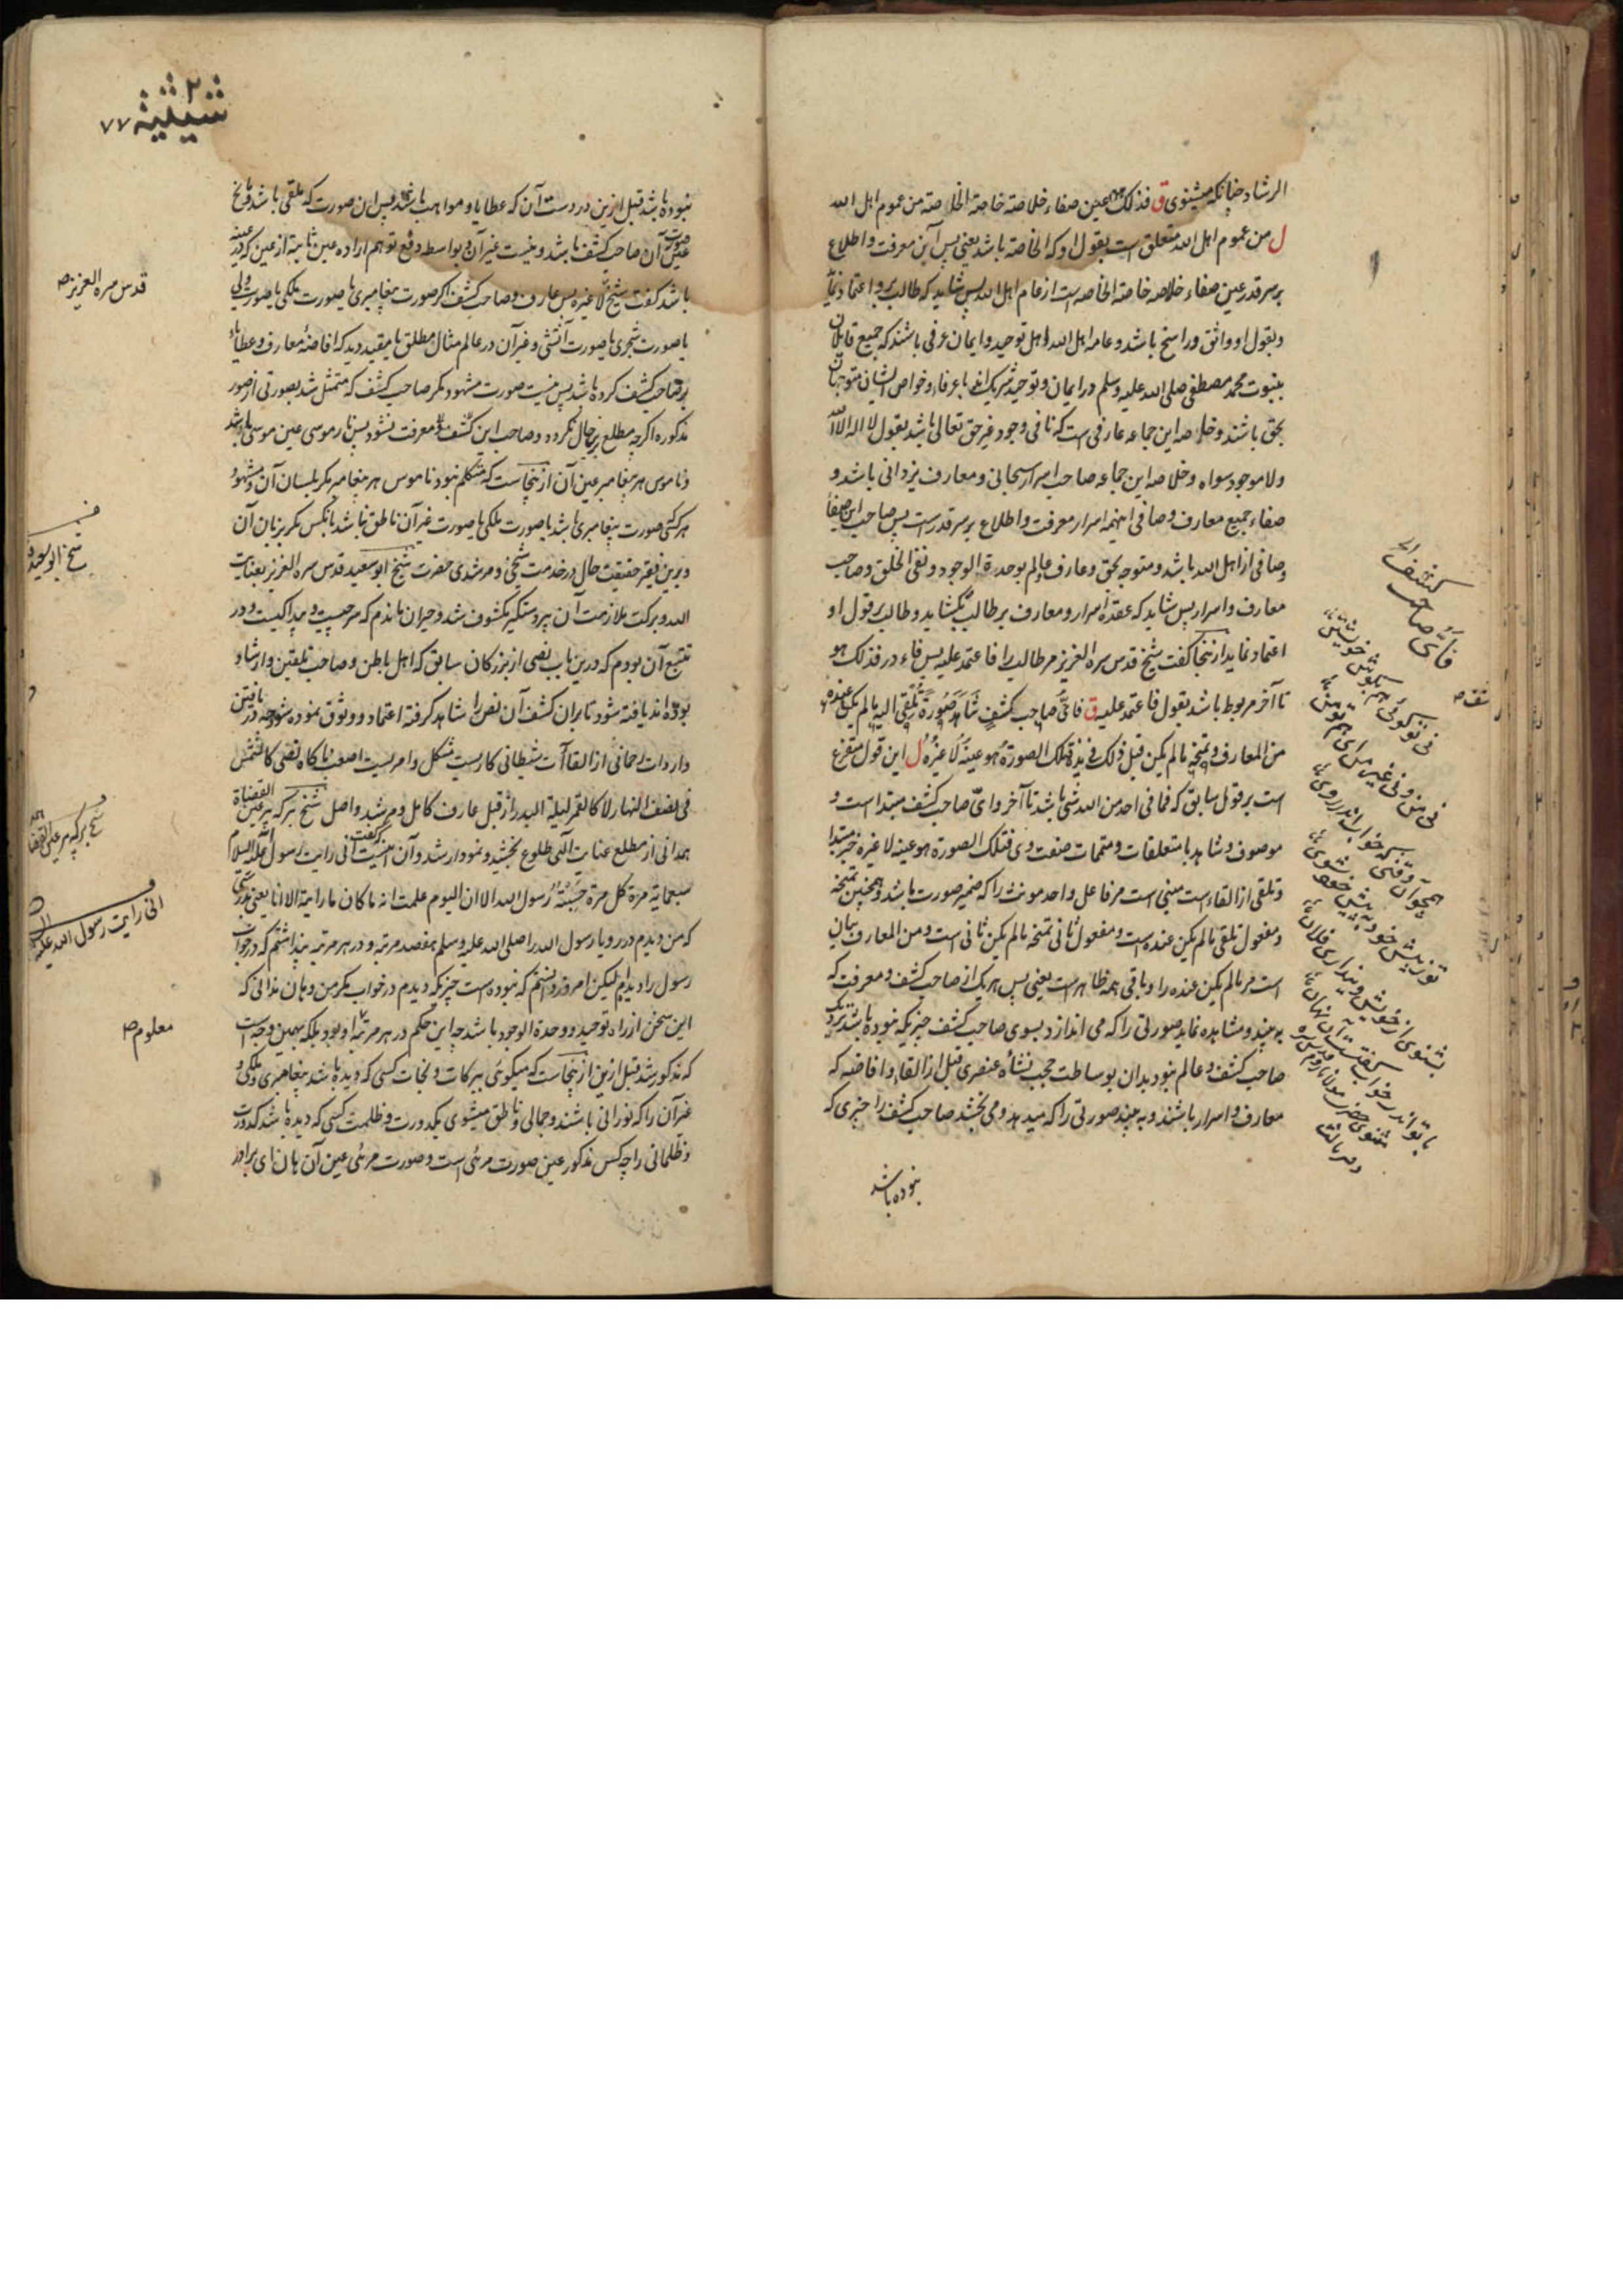 الرشاد چنانکه میشنوی ق فذلک هو عین صفاء خلاصة خاصة الخاصة من عموم اهل الله
ل من عموم اهل الله متعلق است بقول او که الخاصة باشد یعنی پس این معرفت و اطلاع
بر سر قدر عین صفاء خلاصه خاصة الخاصه است از عام اهل الله پس شاید که طالب برو اعتماد نماید
و بقول او واثق و راسخ باشد و عامه اهل الله اهل توحید و ایمان عرفی باشند که جمیع قایلان
بنبوت محمد مصطفی صلی الله علیه وسلم در ایمان و توحید شریک اند با عرفاء و خواص ایشان متوجهان
بحق باشند و خلاصه این جماعه عارفی است که نافی وجود غیر حق تعالی باشد بقول لا اله الا الله
ولا موجود سواه و خلاصه این جماعه صاحب اسرار سبحانی و معارف یزدانی باشد و
صفاء جمیع معارف و صافی اینهمه اسرار معرفت و اطلاع بر سر قدر است پس صاحب این صفا
وصافی از اهل الله باشد و متوجه بحق و عارف و عالم بوحدة الوجود و نفی الخلق و صاحب
معارف و اسرار پس شاید که عقدهٔ اسرار و معارف بر طالب بکشاید و طالب بر قول او
اعتماد نماید ازینجا گفت شیخ قدس سره العزیز مر طالب را فاعتمد علیه پس فاء در فذلک هو
تا آخر مربوط باشد بقول فاعتمد علیه ق فای صاحب کشف شاهد صورة تلقی الیه ما لم یکن عنده
من المعارف و تمنحه ما لم یکن قبل ذلک فی یده فتلک الصورة هو عینه لا غیره ل این قول متفرع
است بر قول سابق که فما فی احد من الله شی باشد تا آخر و ای صاحب کشف مبتدا است و
موصوف و شاهد با متعلقات و متممات صفت وی فتلک الصورة هو عینه لا غیره خبر مبتدا
و تلقی از القاء است مبنی است مر فاعل واحد مونث را که ضمیر صورت باشد و همچنین تمنحه
و مفعول تلقی ما لم یکن عنده است و مفعول ثانی تمنحه ما لم یکن ثانی است و من المعارف بیان
است مر ما لم یکن عنده را و باقی همه ظاهر است یعنی پس هر یک از صاحب کشف و معرفت که
به بیند و مشاهده نماید صورتی را که می اندازد بسوی صاحب کشف چیزیکه نبوده باشد نزدیک
صاحب کشف و عالم نبود بدان بوساطت حجب نشاهٔ عنصری قبل از القاء و افاضه که
معارف و اسرار باشند و به بیند صورتی را که میدهد و می بخشد صاحب کشف را چیزی که
نبوده باشد
فای صاحب کشف الخ
نی تو گوئی هم بگوش خویشتن
نی من و نی غیر من ای هم تو من
همچو آن وقتی که خواب اندر روی
تو ز پیش خود به پیش خود شوی
بشنوی از خویش و پنداری فلان
با تو اندر خواب گفتست آن نهان
مثنوی حضرت مولانا روم قدس سره
۲
شیثیة ۷۷
نبوده باشد قبل ازین در دست آن که عطایا و مواهب باشند پس ان صورت که ملقی باشد و مانح
عین صورت آن صاحب کشف باشد و نیست غیر آن و بواسطه دفع توهم اراده عین ثابته از عین که در عینه
باشد گفت شیخ لا غیره پس عارف و صاحب کشف اگر صورت پیغامبری یا صورت ملکی یا صورت ولی
یا صورت شجری یا صورت آتشی و غیر آن در عالم مثال مطلق یا مقید دید که افاضهٔ معارف و عطایا
بر صاحب کشف کرده باشد پس نیست صورت مشهود مگر صاحب کشف که متمثل شد بصورتی از صور
مذکوره اگرچه مطلع بر حال نگردد و صاحب این کشف و معرفت نشود پس نار موسی عین موسی باشد
و ناموس هر پیغامبر عین آن ازینجاست که متکلم نبود ناموس هر پیغامبر مگر بلسان آن و مشهود
هر کسی صورت پیغامبری باشد یا صورت ملکی یا صورت غیر آن ناطق نباشد بآنکس مگر بزبان آن
و برین فقیر حقیقت حال در خدمت شیخی و مرشدی حضرت شیخ ابو سعید قدس سره العزیز بعنایت
الله و برکت ملازمت آن پیر دستگیر مکشوف شد و حیران ماندم که سر چیست و پیدا کیست و در
تتبع آن بودم که درین باب نصی از بزرگان سابق که اهل باطن و صاحب تلقین و ارشاد
بوده اند یافته شود تا بران کشف آن نص را شاهد گرفته اعتماد و وثوق نموده شود چه در یافتن
واردات رحمانی از القاآت شیطانی کاریست مشکل و امریست اصعب ناگاه نصی کالشمس
فی نصف النهار لا کالقمر لیلة البدر از قبل عارف کامل و مرشد واصل شیخ برکه پیر عین القضاة
همدانی از مطلع عنایت الهی طلوع بخشید و نمودار شد و آن اینست گفت انی رایت رسول الله علیه السلام
سبعمایة مرة کل مرة حسبته رسول الله الا ان الیوم علمت انه ما کان ما رایته الا انا یعنی بدرستی
که من دیدم در رویا رسول الله را صلی الله علیه وسلم هفتصد مرتبه و در هر مرتبه پنداشتم که در خواب
رسول را دیدم لیکن امروز دانستم که نبوده است چیزیکه دیدم در خواب مگر من و هان ندانی که
این سخن از راه توحید و وحدة الوجود باشد چه این حکم در هر مرتبهٔ او بود بلکه بهمین وجه است
که مذکور شد قبل ازین ازینجاست که میگوئی ببرکات و نجات کسی که دیده باشد پیغامبری و ملکی و
غیر آن را که نورانی باشند و جمالی و ناطق میشوی بکدورت و ظلمت کسی که دیده باشد کدورت
و ظلمانی را چه کس مذکور عین صورت مرئی است و صورت مرئی عین آن هان ای برادر
قدس سره العزیز صح
شیخ ابو سعید
شیخ برکه پیر عین القضاة
انی رایت رسول الله علیه السلام
معلوم صح